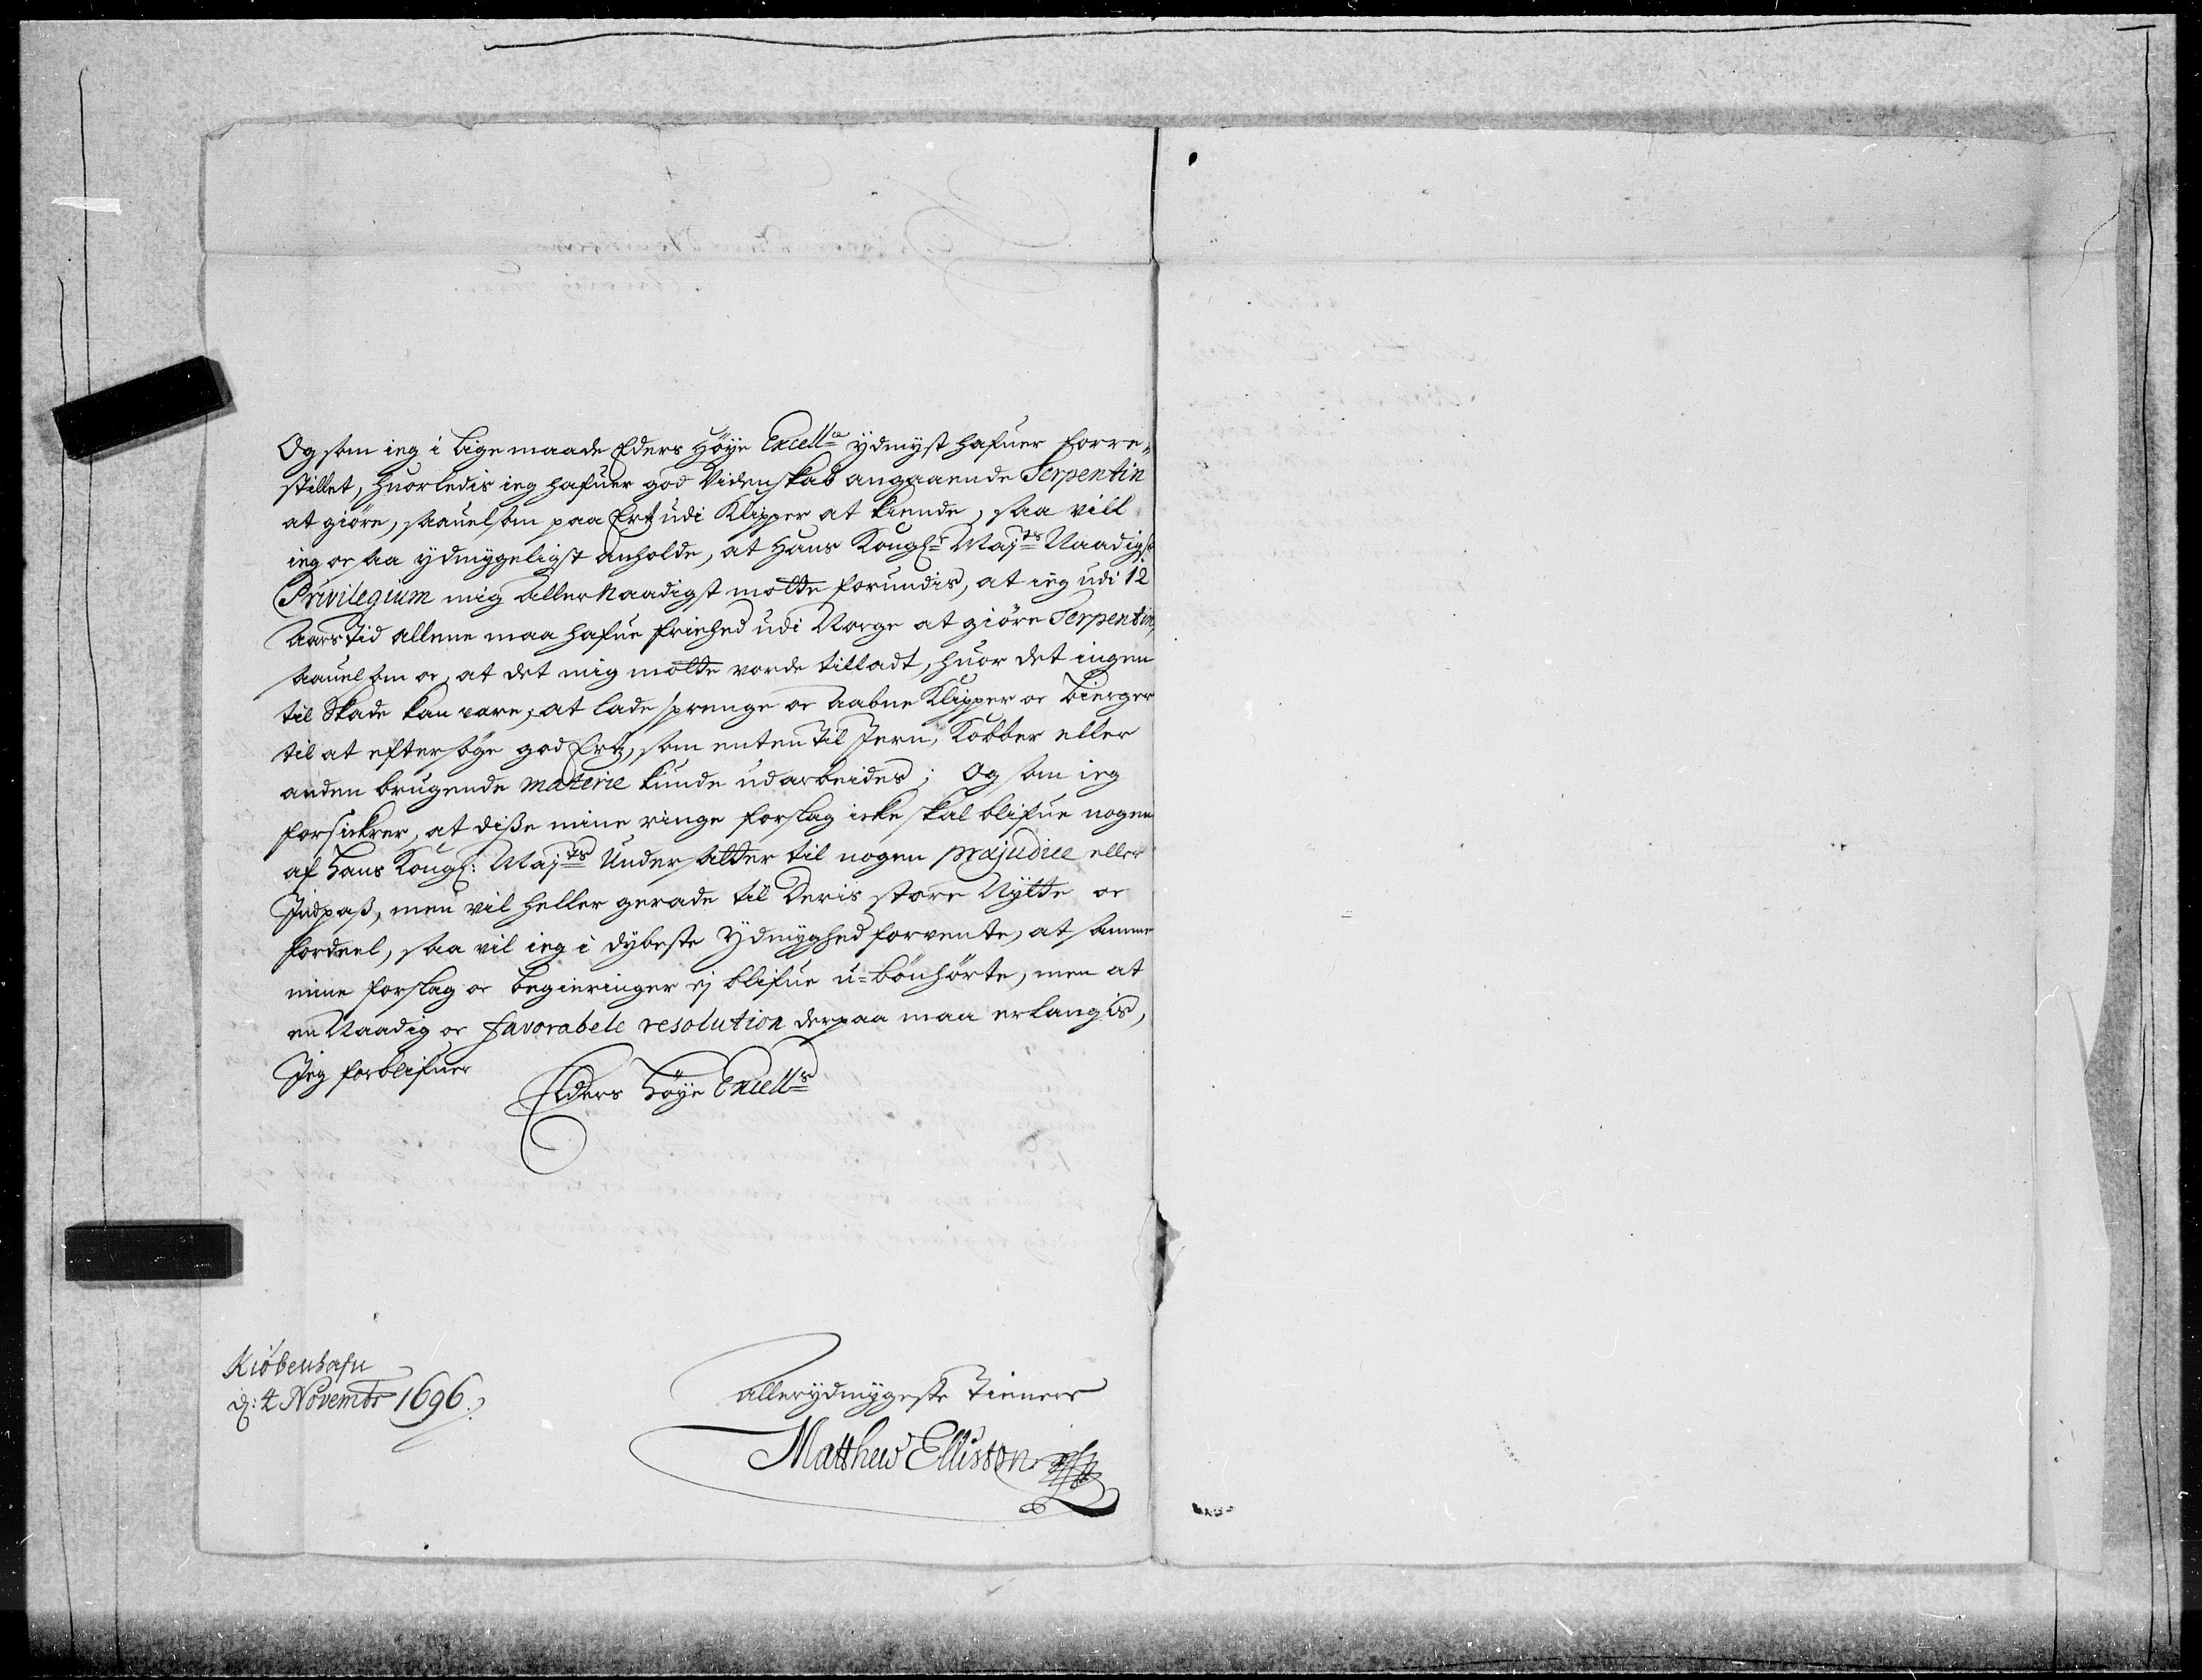 Og som ieg i lige maade Eders Høye Excell.ce ydmygst hafuer forre-
stillet, huorledis ieg hafuer god Videnskab angaaende Serpentin
at giøre, saauelsom paa Ertz udi Klipper at kiende, saa vill
ieg oc saa ydmygeligst anholde, at Hans Kongl: Maj:ts Naadigst
Privilegium mig allernaadigst motte forundis, at ieg udi 12
Aars Tid allene maa hafue friehed udi Norge at giøre Serpentin,
saauelsom oc, at det mig motte vorde tilladt, huor det ingen
til Skade kan være, at lade sprenge oc aabne Klipper oc Bierger
til at eftersøge god Ertz, som enten til Jern, Kobber eller
anden brugende materie kunde udarbeides; Og som ieg
forsickrer, at diße mine ringe forslag icke skal blifue nogen
af Hans Kongl: Maj:ts Undersatter til nogen præjudice eller
Indpaß, men vil heller gerade til Deris store Nytte oc
fordeel, saa vil ieg i dybeste Ydmyghed forvente, at samme
mine forslag oc begieringer ej blifue u-bønhørte, men at
en Naadig oc favorabele resolution derpaa maa erlangis,
Jeg forblifuer
Eders Høye Excell:s
Kiøbenhafn
d: 4 Novembr 1696.
allerydmygeste Tienere
Matthew Elliston